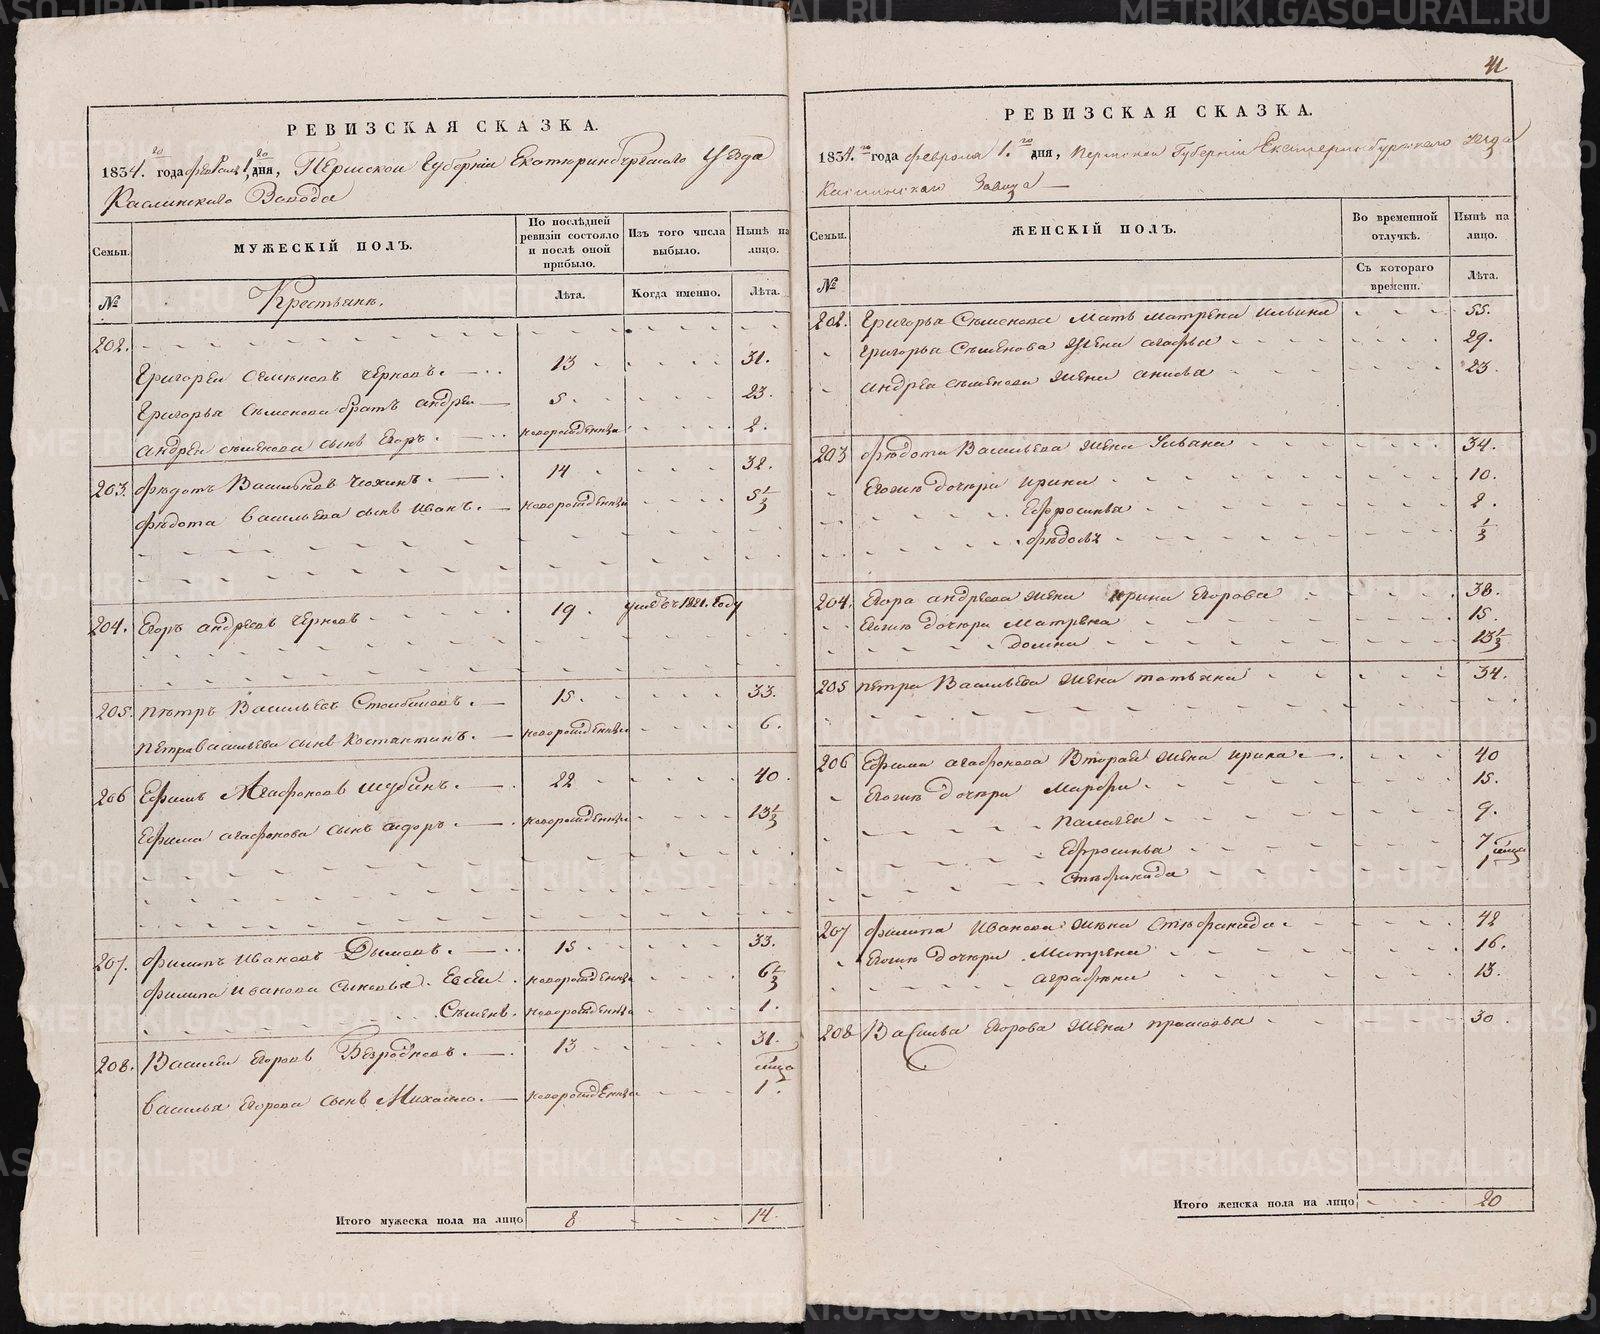 РЕВИЗСКАЯ СКАЗКА.
1834. го года февраля 1. го дня, Пермской Губернiи Екатеринбургскаго Уѣзда
Каслинскаго Завода
Семьи.
МУЖЕСКIЙ ПОЛЪ.
По послѣдней ревизiи состояло и послѣ оной прибыло.
Изъ того числа выбыло.
Нынѣ на лицо.
№
Крестьянъ.
Лѣта.
Когда именно.
Лѣта.
202.
Григорей Семеновъ Черновъ. 13 31.
Григорья Семенова братъ андрей 5 23.
андрея семенова сынъ Егоръ. новорожденны 2.
203. федотъ Васильевъ Чюхинъ. 14 32.
федота васильева сынъ иванъ. новорожденны 5 1/2
204. Егоръ андреевъ Черновъ 19. умеръ 1821. году
205. петръ Васильевъ 15. 33.
петра васильева сынъ костантинъ. новорожденны 6.
206 Ефимъ Агафоновъ шубинъ. 22 40.
Ефима агафонова сынъ сидоръ. новорожденны 13 1/2
207. филипъ ивановъ Дымовъ. 15 33.
филипа иванова сыновья. Евсеи. новорожденны 6 1/2
Семенъ. новорожденны 1.
208. Василеи Егоровъ Безродновъ. 13 31.
мца
василья Егорова сынъ Михаило. новорожденны 1.
Итого мужеска пола на лицо 8 14.
41
РЕВИЗСКАЯ СКАЗКА.
1834. го года февраля 1. го дня, Пермской Губернiи Екатеринбургскаго Уезда
Каслинскаго Завода
Семьи.
ЖЕНСКIЙ ПОЛЪ.
Во временной отлучкѣ.
Нынѣ на лицо.
№
Съ котораго времени.
Лѣта.
202. Григорья Семенова мать матрена ильина 55.
Григорья Семенова жена агафья 29.
андрея семенова жена анисья 23.
203 федота Васильева жена Ульяна 34.
Егожъ дочери ирина 10.
Ефросинья 2.
федосья 1/2
204. Егора андреева жена ирина Егорова 38.
Егожъ дочери матрена 15.
домна 13 1/2
205 петра Васильева жена татьяна 34.
206 Ефима агафонова Вторая жена ирина. 40
Егожъ дочери Марфа 15.
палагея 9.
Ефросинья 7
мца
Стефанида 1
207 филипа иванова жена Стефанида. 42
Егожъ дочери. Матрена 16.
аграфена 13.
208 Василья Егорова жена прасковья 30.
Итого женска пола на лицо 20
METRIKI.GASO-URAL.RU